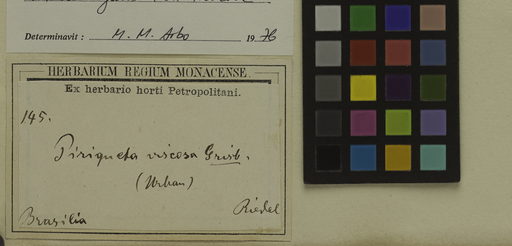 Determinavit : M. M. Arbo 1976
HERBARIUM REGIUM MONACENSE.
Ex herbario horti Petropolitani.
145.
Piriqueta viscosa Grisb.
(Urban)
Riedel
Brasilia